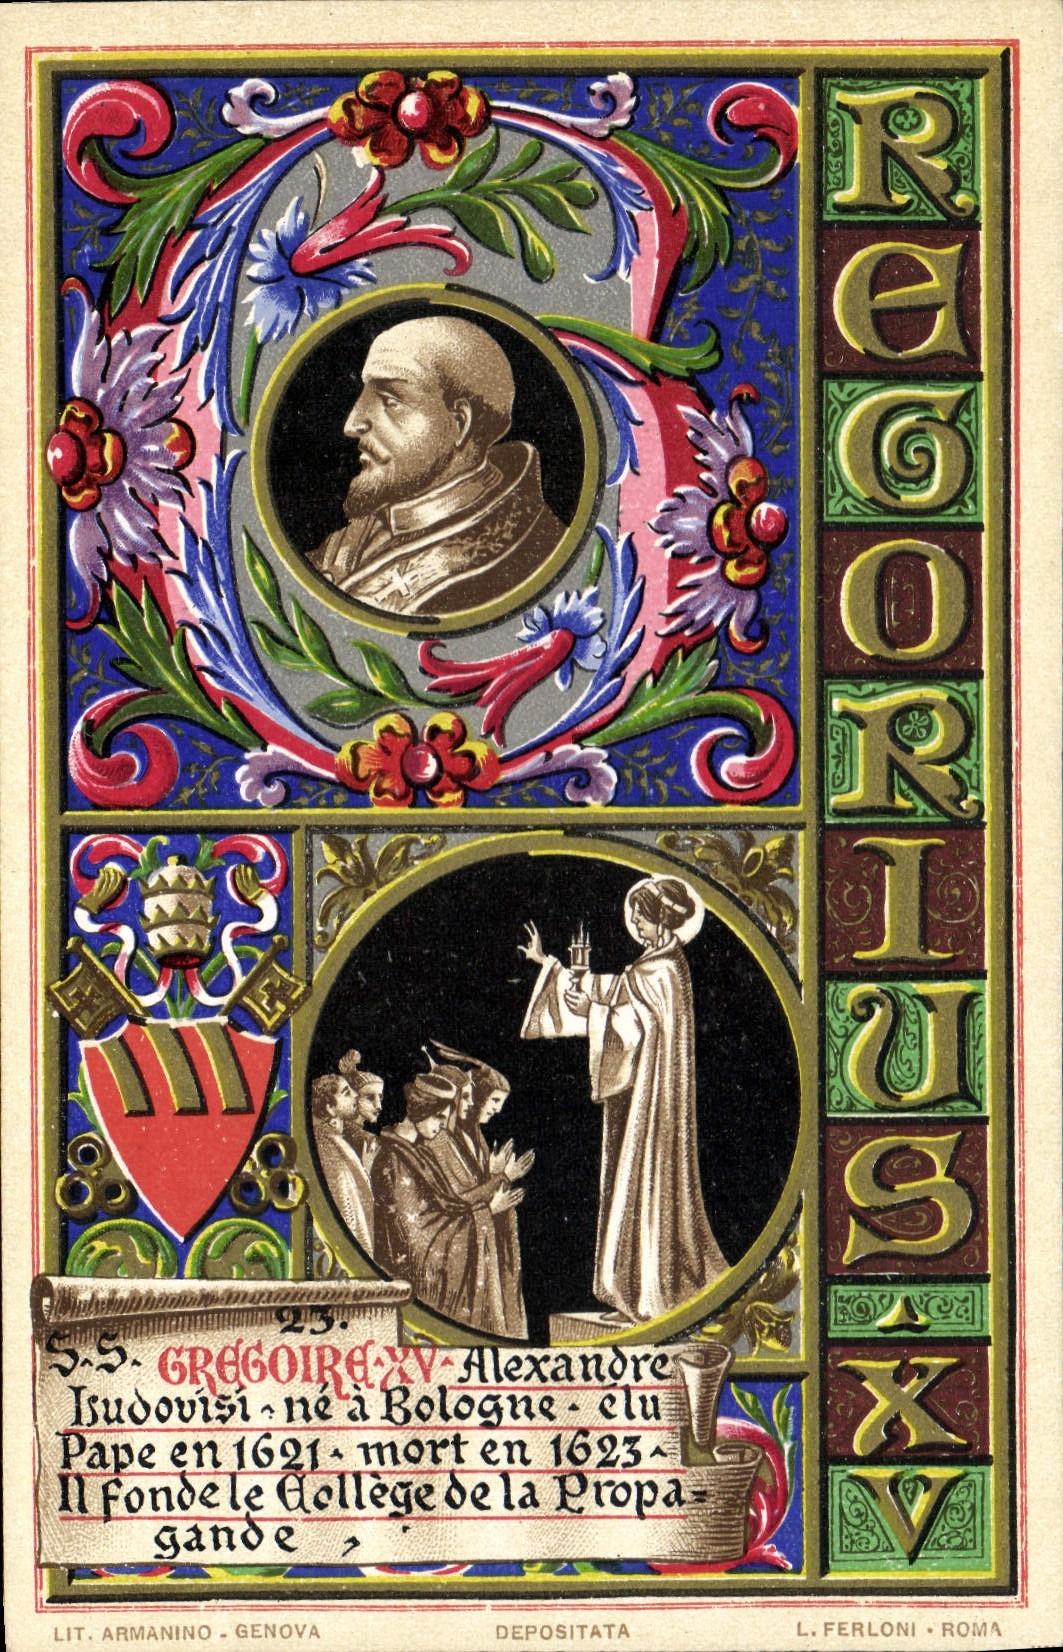 REGORIUS XV
23.
S.S. GREGOIRE·XV· Alexandre
Ludovisi · né à Bologne · elu
Pape en 1621 · mort en 1623 ·
Il fonde le Collège de la Propa=
gande ,
LIT. ARMANINO - GENOVA
DEPOSITATA
L. FERLONI · ROMA